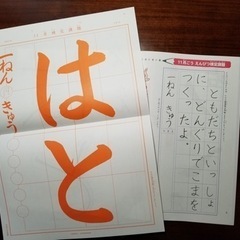 11月競書課題
はと
一ねん きゅう
11月ごう えんぴつ競書課題
ともだちといっしょ
に、どんぐりでこまを
つくったよ。
一ねん きゅう